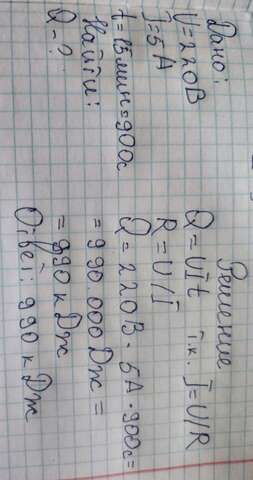 Дано:
U=220В
I=5А
t=15мин=900с
Найти:
Q-?
Решение
Q=UIt т.к. I=U/R
R=U/I
Q=220В·5А·900с=
=990.000Дж=
=990кДж
Ответ: 990кДж